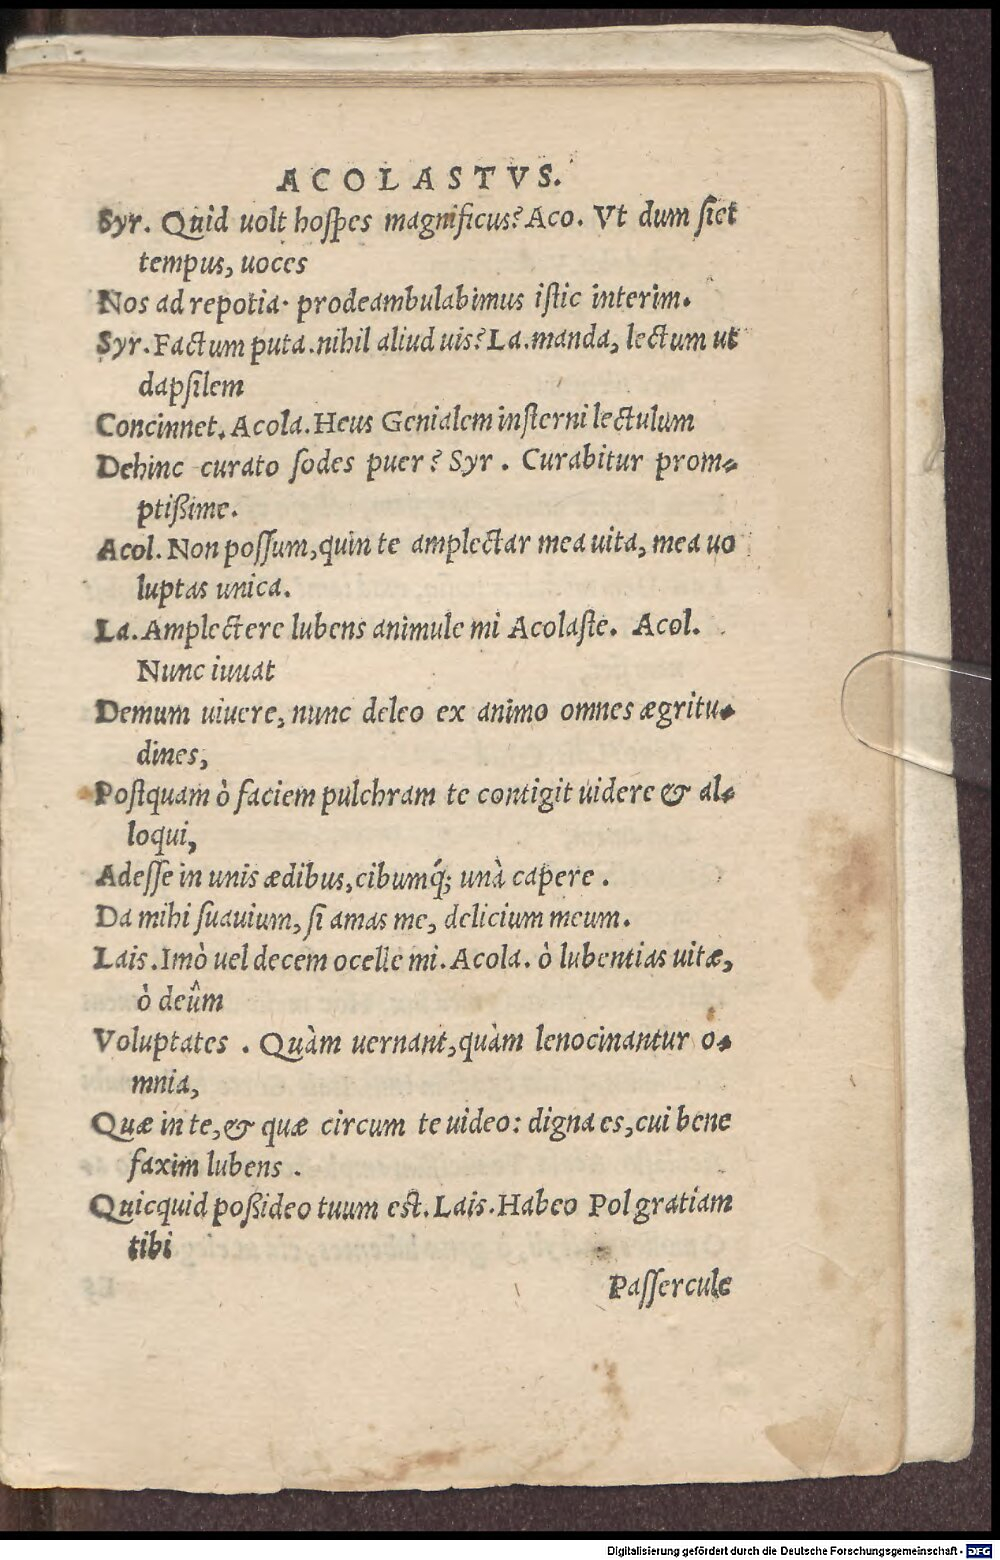 ACOLASTVS.
Syr. Quid uolt hoſpes magnificus? Aco. Vt dum ſiet
tempus, uoces
Nos ad repotia· prodeambulabimus iſtic interim.
Syr. Factum puta. nihil aliud uis? La. manda, lectum ut
dapſilem
Concinnet. Acola. Heus Genialem inſterni lectulum
Dehinc curato ſodes puer? Syr. Curabitur prom-
ptißime.
Acol. Non poſſum, quin te amplectar mea uita, mea uo
luptas unica.
La. Amplectere lubens animule mi Acolaſte. Acol.
Nunc iuuat
Demum uiuere, nunc deleo ex animo omnes ægritu-
dines,
Poſtquam ò faciem pulchram te contigit uidere & al-
loqui,
Adeſſe in unis ædibus, cibumq́; unà capere.
Da mihi ſuauium, ſi amas me, delicium meum.
Lais. Imò uel decem ocelle mi. Acola. ò lubentias uitæ,
ò deûm
Voluptates. Quàm uernant, quàm lenocinantur o-
mnia,
Quæ in te, & quæ circum te uideo: digna es, cui bene
faxim lubens.
Quicquid poßideo tuum eſt. Lais. Habeo Pol gratiam
tibi
Paſſercule
Digitalisierung gefördert durch die Deutsche Forschungsgemeinschaft - DFG